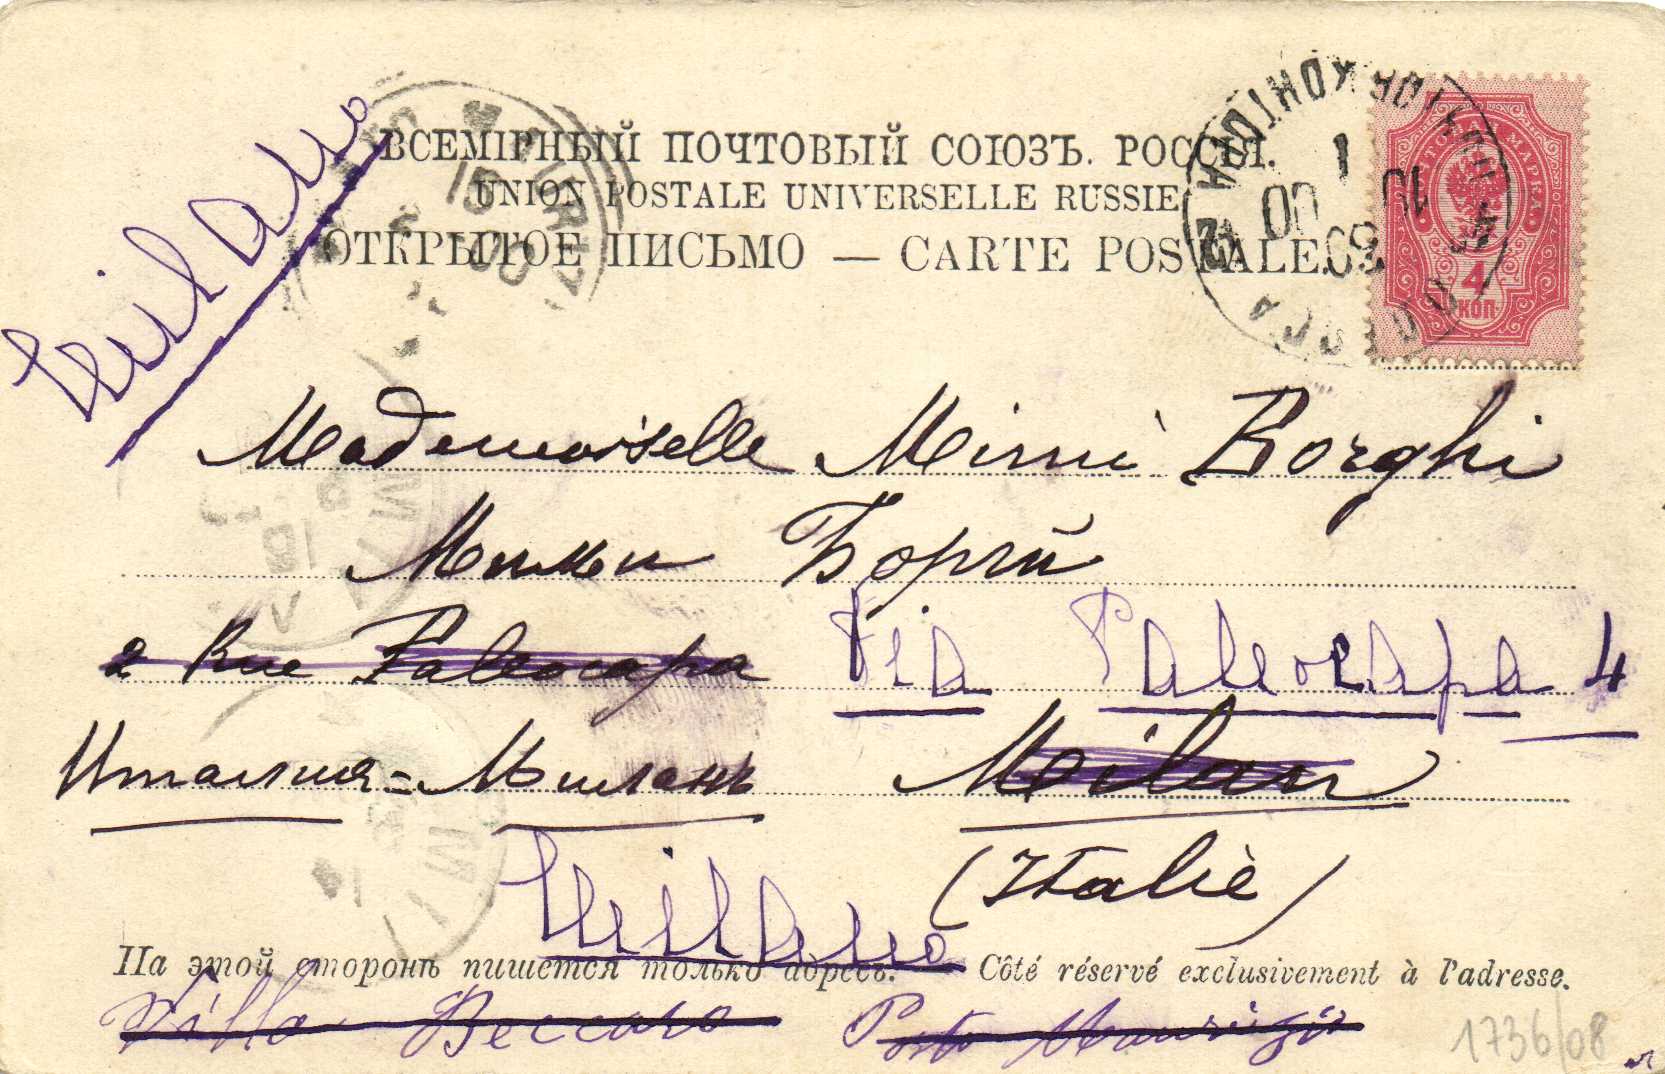 ВСЕМІРНЫЙ ПОЧТОВЫЙ СОЮЗЪ. РОССІЯ.
UNION POSTALE UNIVERSELLE RUSSIE
ОТКРЫТОЕ ПИСЬМО — CARTE POSTALE
Milano
ПОЧТОВАЯ МАРКА
4
КОП
ОДЕССА
КОНТОРА
1
10
00
Mademoiselle Mimi Borghi
Мими Боргй
2 Rue Paleocapa Via Paleocapa 4
Италия = Миланъ Milan
(Italiè)
Milano
На этой сторонѣ пишется только адресъ. Côté réservé exclusivement à l'adresse.
Villa Beccaro Porto Maurizio
1736/08